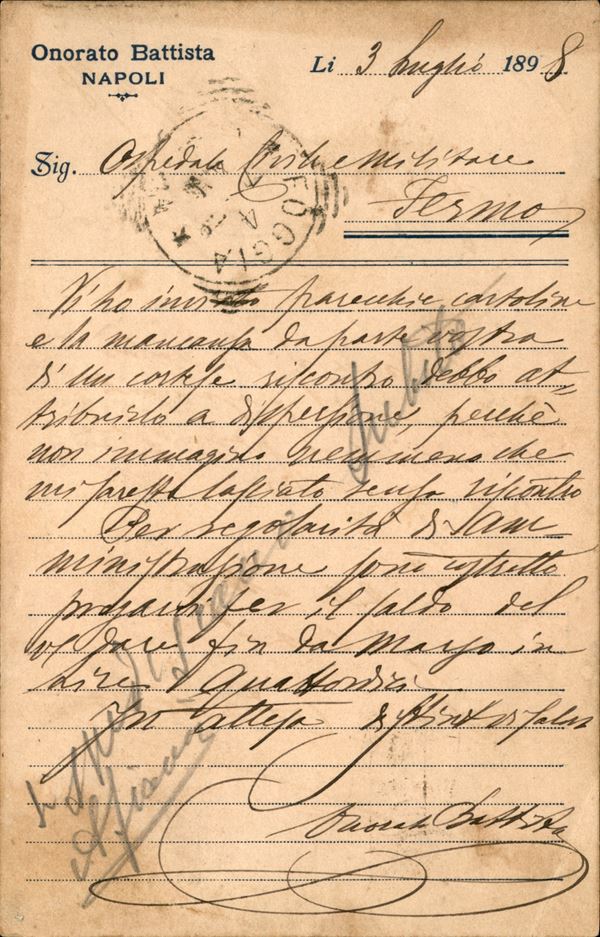 Onorato Battista
NAPOLI
Li 3 Luglio 1898
Sig. Ospedale Civile e Militare
Fermo
FOGGIA
Vi ho inviato parecchie cartoline
e la mancanza da parte vostra
di un cortese riscontro debbo at-
tribuirlo a dispersione, perchè
non immagino nemmeno che
mi sareste lasciato senza riscontro
Per regolarità di am-
ministrazione sono costretto
pregarvi per il saldo del
vs dare fin da Marzo in
Lire Quattordici
In attesa distint saluti
Onorato Battista
subito